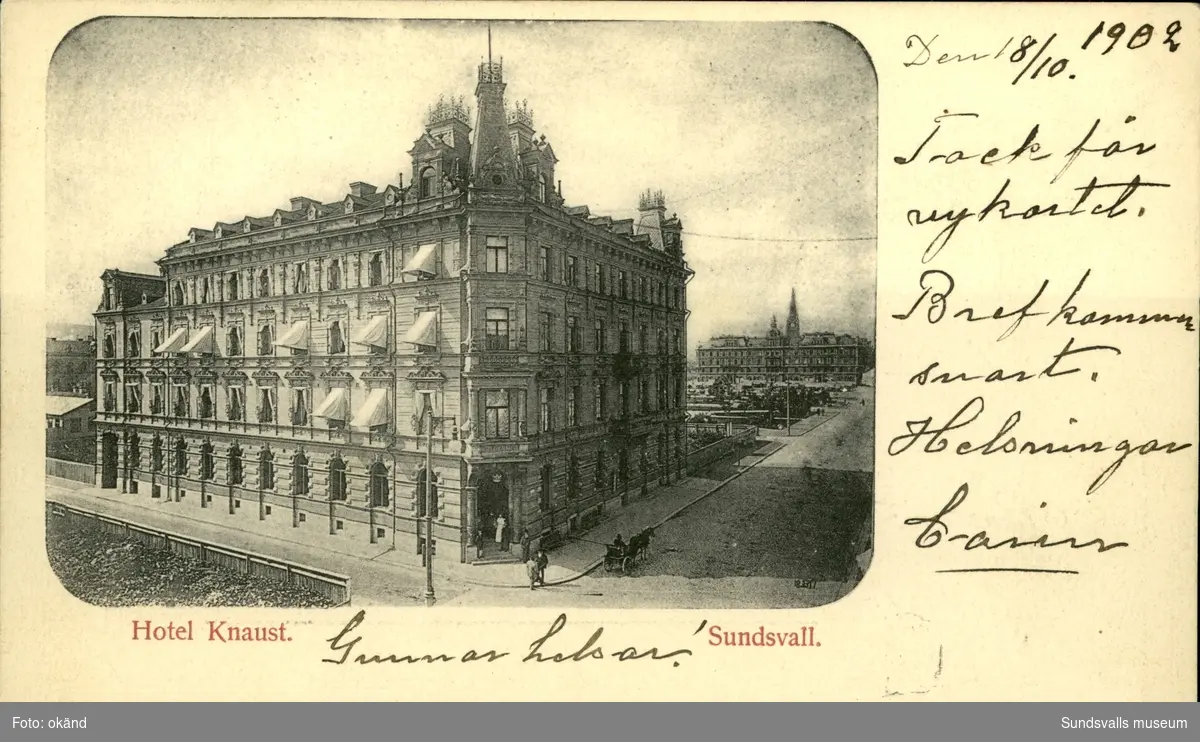 Den 18/10. 1902
Tack för
vykortet.
Bref kommer
snart.
Helsningar
Carin
Hotel Knaust.
Gunnar helsar!
Sundsvall.
Foto: okänd
Sundsvalls museum